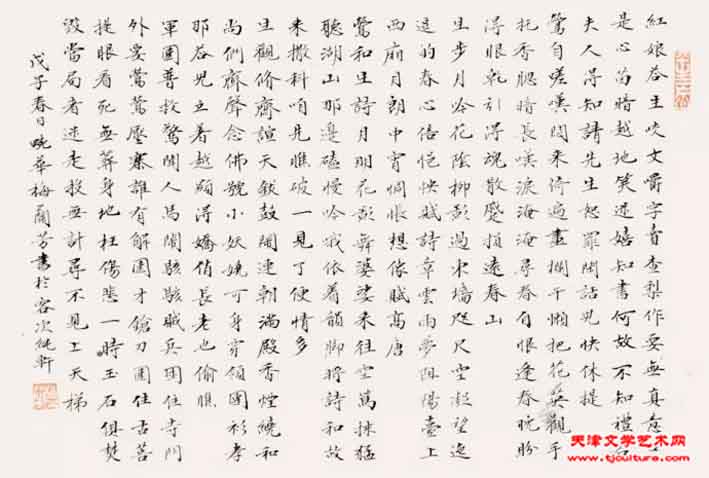 紅娘答生咬文嚼字音查梨作耍無真意
是心苗暗越地笑迷嬉知書何故不知禮
夫人得知請先生恕罪閒話兒快休提
鶯自嗟嘆閒來倚遍畫欄干懶把花英觀手
托香腮暗長嘆淚淹淹尋春有恨逢春晚盼
得眼乾引得魂散蹙損遠春山
生步月吟花陰柳影過東墻咫尺空凝望逗
逗的春心倍悒怏賦詩章雲雨夢陽臺上
西廂月朗中宵惆悵想像賦高唐
鶯和生詩月明花影舞婆娑來往空萬抹猛
聽湖山那邊磕慢吟哦依着韻脚將詩和故
來撒科咱先瞧破一見了便情多
生觀修齋諠天鈸鼓鬧連朝滿殿香煙繞和
尚們齊聲念佛號小妖嬈可身穿領團衫孝
那答兒立着越顯得嬌俏長老也偷瞧
軍圍普救驚聞人馬鬧駭駭賊兵困住寺門
外要鶯鶯壓寨誰有解圍才鎗刀圍住古菩
提眼看死無葬身地枉傷悲一時玉石俱焚
毀當局者迷走投無計尋不見上天梯
戊子春日畹華梅蘭芳書於
天津文学艺术网
www.tjculture.com